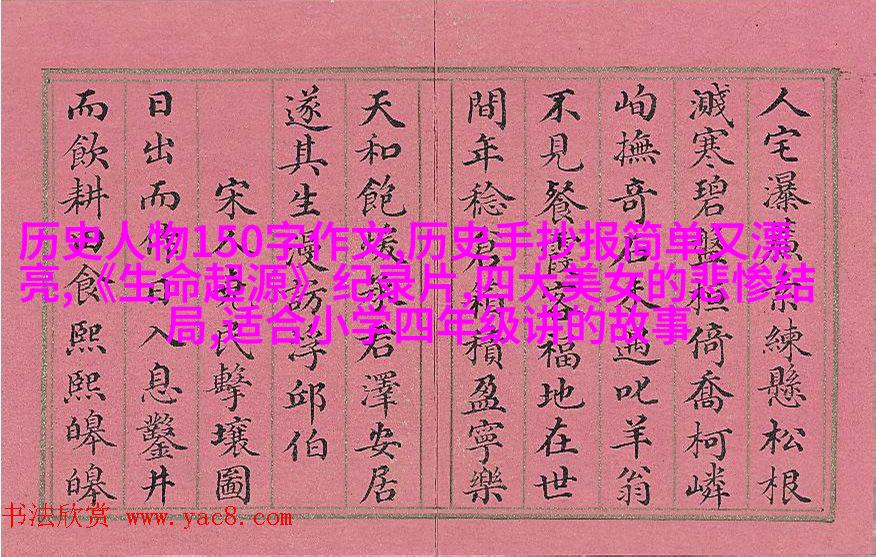 人宅瀑練懸松根
濺寒碧盤桓倚喬柯嶙
峋撫奇石天遇叱羊翁
不見餐霞客福地在世
間年稔倉箱積盈寧樂
天和飽君澤安居
遂其生漫訪浮邱伯
宋人民擊壤圖
日出而作日入息鑿井
而飲耕田食熙熙皞皞
历史人物150字作文,历史手抄报简单又漂
亮,《生命起源》纪录片,四大美女的悲惨结
局,适合小学四年级讲的故事
书法欣赏 www.yac8.com